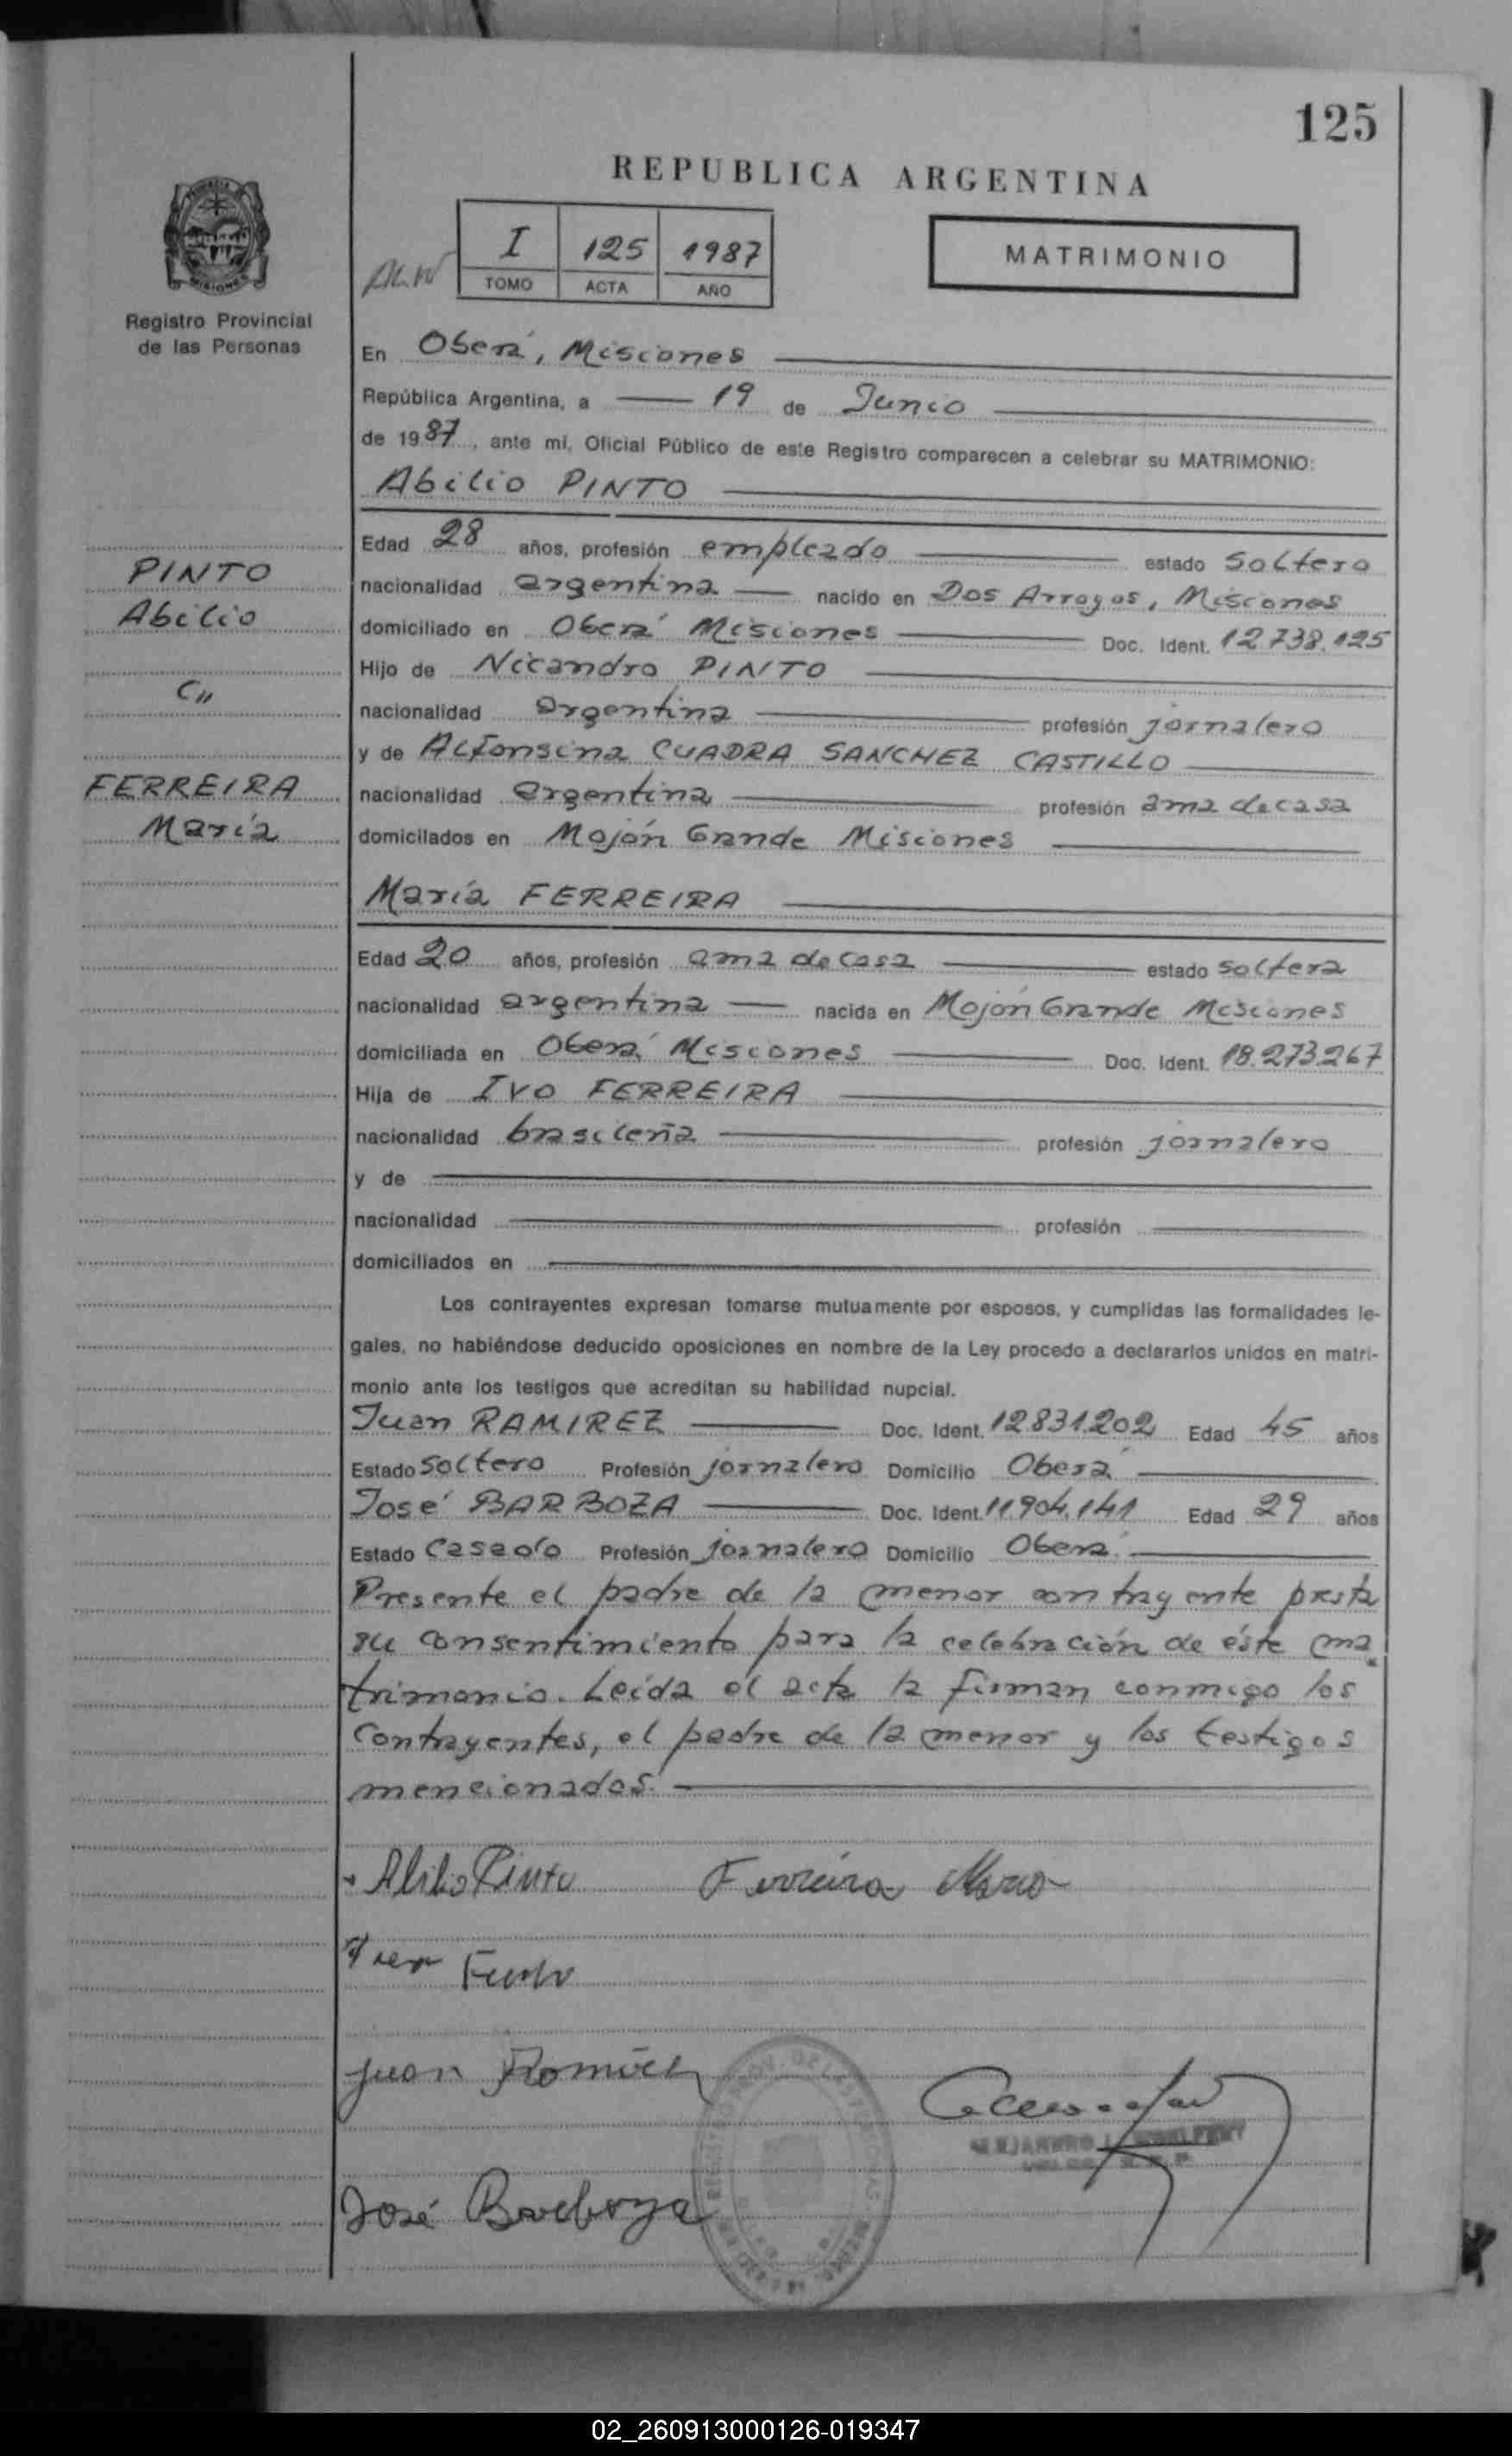 125
REPUBLICA ARGENTINA
I 125 1987
TOMO ACTA AÑO
MATRIMONIO
MISIONES
Registro Provincial
de las Personas
En Oberá, Misiones
República Argentina, a 19 de Junio
de 1987, ante mí, Oficial Público de este Registro comparecen a celebrar su MATRIMONIO:
Abilio PINTO
Edad 28 años, profesión empleado estado soltero
PINTO
nacionalidad argentina nacido en Dos Arroyos, Misiones
Abilio
domiciliado en Oberá Misiones Doc. Ident. 12.738.125
Hijo de Nicandro PINTO
C//
nacionalidad argentina profesión jornalero
y de Alfonsina CUADRA SANCHEZ CASTILLO
FERREIRA
nacionalidad argentina profesión ama de casa
María
domicilados en Mojón Grande Misiones
María FERREIRA
Edad 20 años, profesión ama de casa estado soltera
nacionalidad argentina nacida en Mojón Grande Misiones
domiciliada en Oberá Misiones Doc. Ident. 18.273.267
Hija de Ivo FERREIRA
nacionalidad brasileña profesión jornalero
y de
nacionalidad profesión
domiciliados en
Los contrayentes expresan tomarse mutuamente por esposos, y cumplidas las formalidades le-
gales, no habiéndose deducido oposiciones en nombre de la Ley procedo a declararlos unidos en matri-
monio ante los testigos que acreditan su habilidad nupcial.
Juan RAMIREZ Doc. Ident. 12.831.202 Edad 45 años
Estado soltero Profesión jornalero Domicilio Oberá
José BARBOZA Doc. Ident. 11.904.141 Edad 29 años
Estado casado Profesión jornalero Domicilio Oberá
Presente el padre de la menor contrayente presta
su consentimiento para la celebración de éste ma
trimonio. Leída el acta la firman conmigo los
contrayentes, el padre de la menor y los testigos
mencionados.
Abilio Pinto Ferreira Maria
Juan Ramirez
José Barboza
02_260913000126-019347